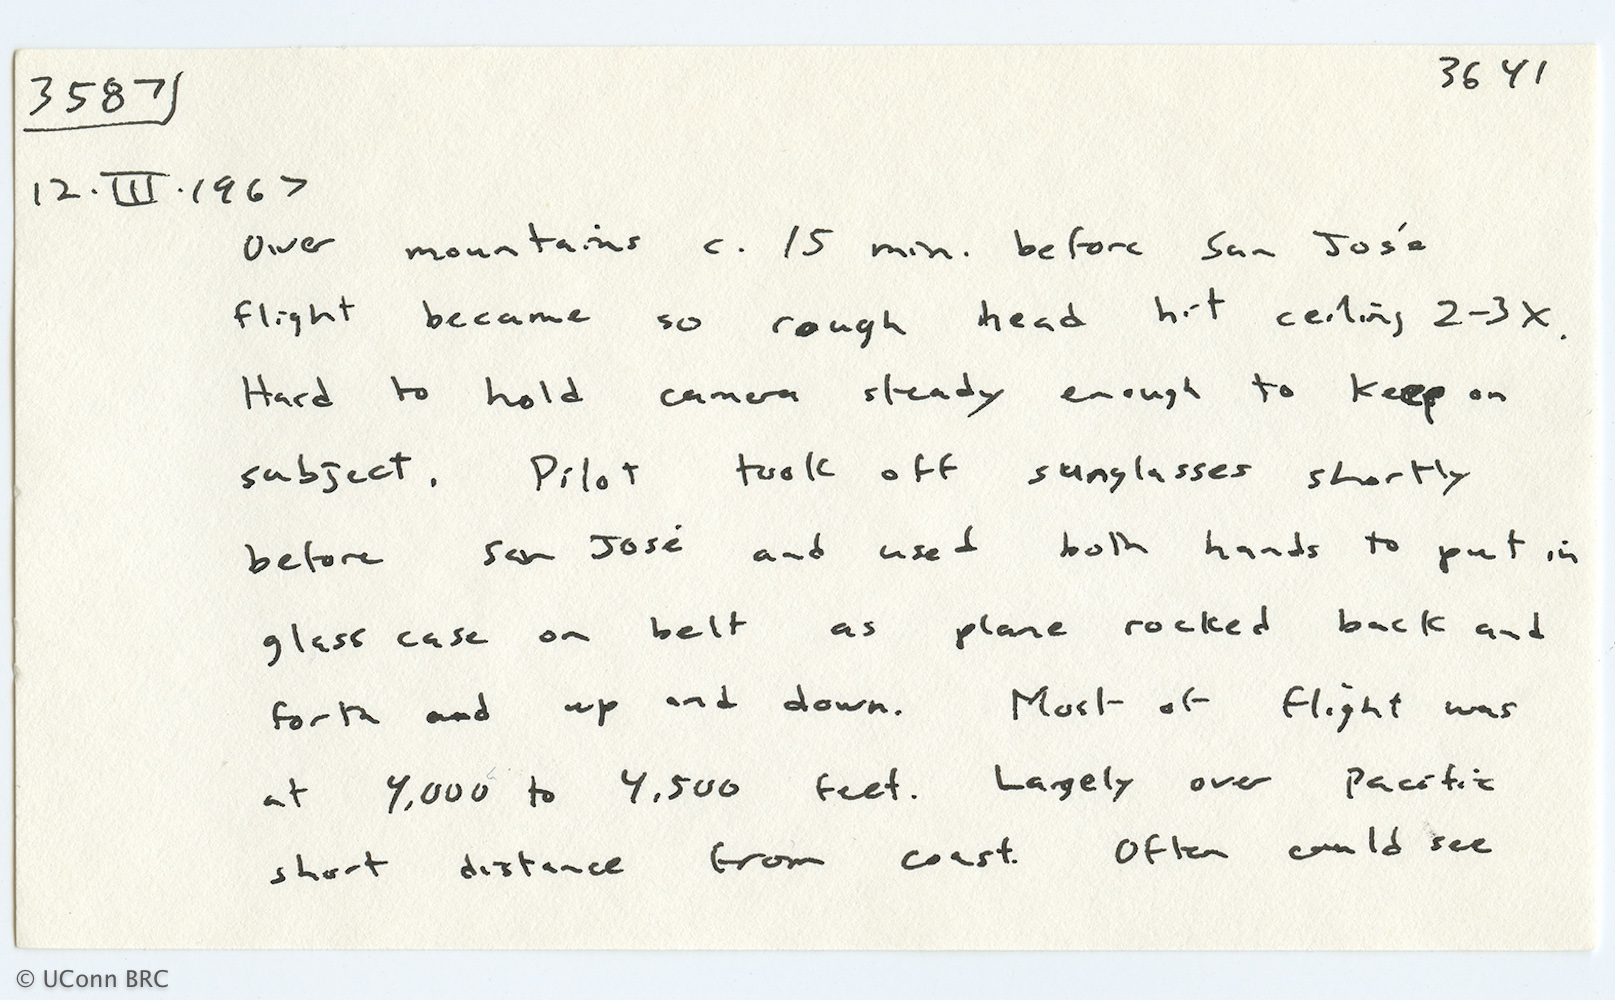 3587 3641
12.III.1967
Over mountains c. 15 min. before San José
flight became so rough head hit ceiling 2-3X.
Hard to hold camera steady enough to keep on
subject. Pilot took off sunglasses shortly
before San José and used both hands to put in
glass case on belt as plane rocked back and
forth and up and down. Most of flight was
at 4,000 to 4,500 feet. Largely over Pacific
short distance from coast. Often could see
© UConn BRC